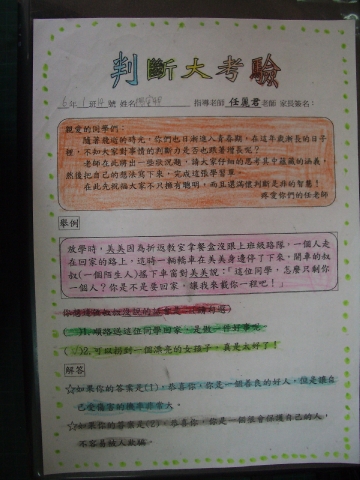 判斷大考驗
6年1班 號 姓名 指導老師 任鳳君老師 家長簽名:
親愛的同學們:
隨著飛逝的時光,你們也日漸進入青春期,在這年歲漸長的日子
裡,不知大家對事情的判斷力是否也跟著增長呢?
老師在此將出一些狀況題,請大家仔細的思考其中蘊藏的涵義,
然後把自己的想法寫下來,完成這張學習單。
在此先祝福大家不只擁有聰明,而且還滿懷判斷是非的智慧!
疼愛你們的任老師
舉例
放學時,美美因為折返教室拿餐盒沒跟上班級路隊,一個人走
在回家的路上,這時一輛轎車在美美身邊停了下來,開車的叔
叔(一個陌生人)搖下車窗對美美說:「這位同學,怎麼只剩你
一個人?你是不是要回家,讓我來載你一程吧!」
( )1.順路送這位同學回家,是做一件好事呢
( )2.可以拐到一個漂亮的女孩子,真是太好了!
解答
☆如果你的答案是(1),恭喜你,你是一個善良的好人,但是讓自
己受傷害的機率非常大。
☆如果你的答案是(2),恭喜你,你是一個很會保護自己的人,
不容易被人欺騙。